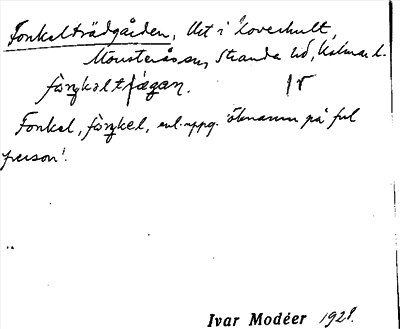 Fonkelträdgården, Urt i Loverhult,
Mönsterås sn, Stranda hd, Kalmar l.
Fonkel, enl. uppg. öknamn på ful
person!
Ivar Modéer 1928.